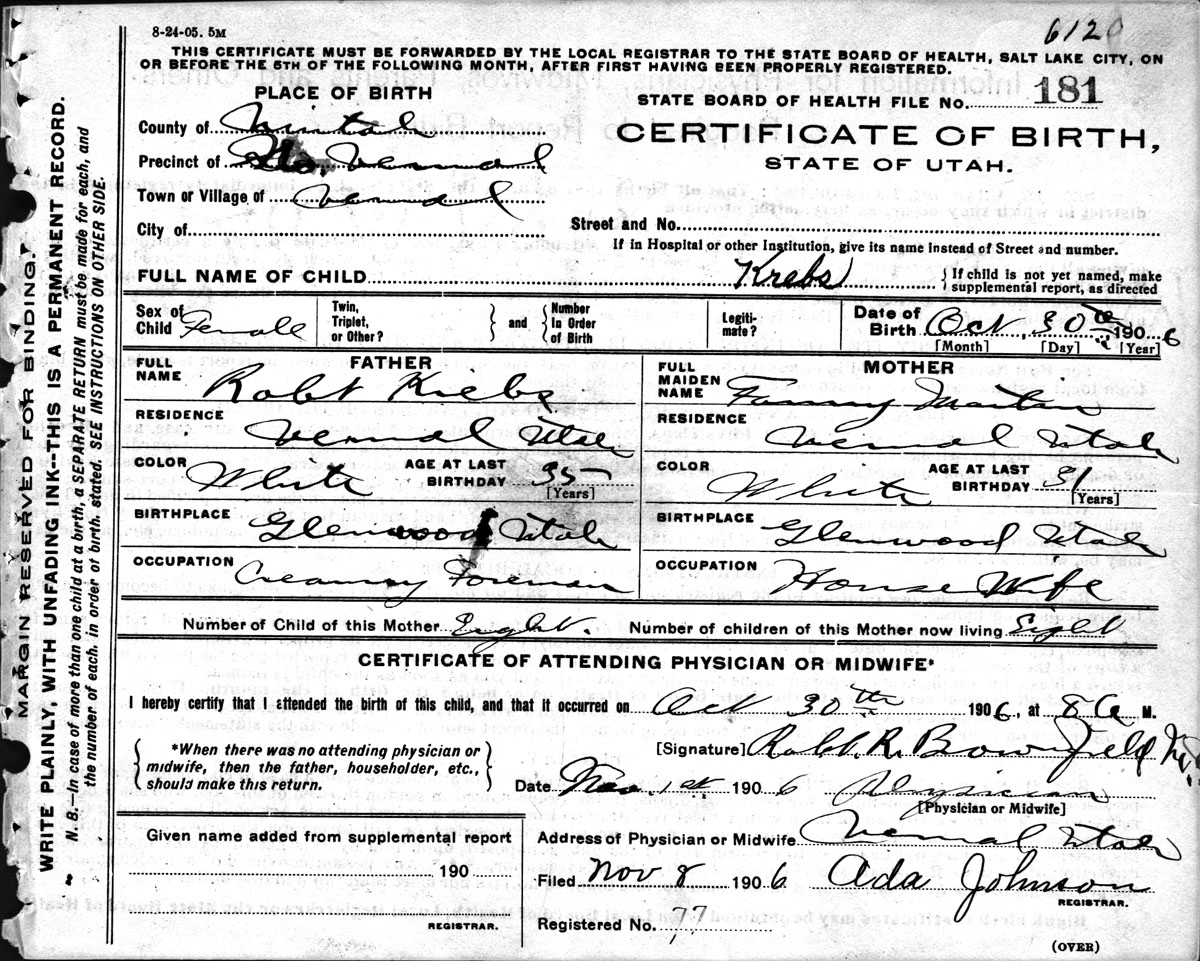 8-24-05. 5M
612
THIS CERTIFICATE MUST BE FORWARDED BY THE LOCAL REGISTRAR TO THE STATE BOARD OF HEALTH, SALT LAKE CITY, ON
OR BEFORE THE 5TH OF THE FOLLOWING MONTH, AFTER FIRST HAVING BEEN PROPERLY REGISTERED.
PLACE OF BIRTH
STATE BOARD OF HEALTH FILE No. 181
County of Uintah
CERTIFICATE OF BIRTH,
Precinct of Vernal
STATE OF UTAH.
Town or Village of Vernal
City of
Street and No.
If in Hospital or other Institution, give its name instead of Street and number.
FULL NAME OF CHILD Krebs } If child is not yet named, make
supplemental report, as directed
Sex of
Child Female
Twin,
Triplet,
or Other?
} and {
Number
In Order
of Birth
Legiti-
mate?
Date of
Birth Oct 30th 1906
[Month] [Day] [Year]
FATHER
FULL
NAME Robt Krebs
RESIDENCE
Vernal Utah
COLOR White AGE AT LAST
BIRTHDAY 35
[Years]
BIRTHPLACE
Glenwood Utah
OCCUPATION
Creamery Foreman
MOTHER
FULL
MAIDEN
NAME Fanny
RESIDENCE
Vernal Utah
COLOR White AGE AT LAST
BIRTHDAY 31
[Years]
BIRTHPLACE
Glenwood Utah
OCCUPATION
House Wife
Number of Child of this Mother Eight. Number of children of this Mother now living Eight
CERTIFICATE OF ATTENDING PHYSICIAN OR MIDWIFE*
I hereby certify that I attended the birth of this child, and that it occurred on Oct 30th 1906, at 8 a M.
{ *When there was no attending physician or
midwife, then the father, householder, etc.,
should make this return. }
[Signature] Robt. R.
Date Nov. 1st 1906 Physician
[Physician or Midwife]
Given name added from supplemental report
190
REGISTRAR.
Address of Physician or Midwife Vernal Utah
Filed Nov 8 1906 Ada Johnson
REGISTRAR.
Registered No. 77
(OVER)
MARGIN RESERVED FOR BINDING.
WRITE PLAINLY, WITH UNFADING INK--THIS IS A PERMANENT RECORD.
N. B.—In case of more than one child at a birth, a SEPARATE RETURN must be made for each, and
the number of each, in order of birth, stated. SEE INSTRUCTIONS ON OTHER SIDE.